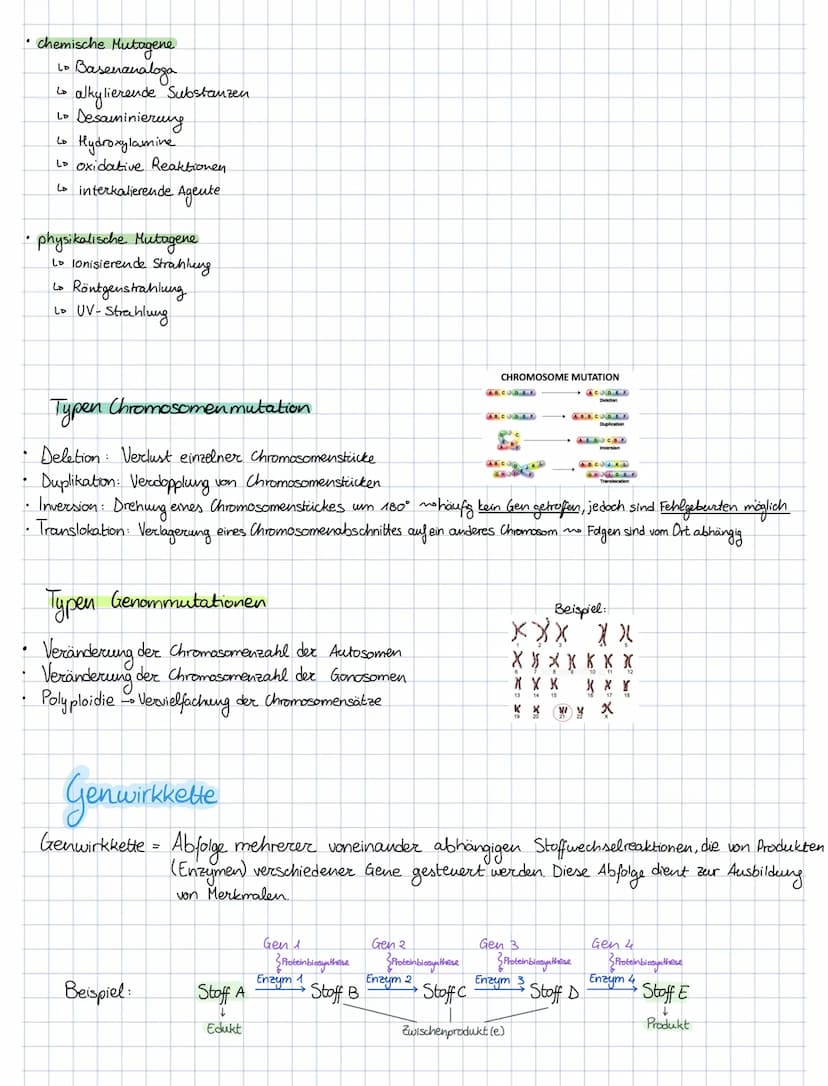 • chemische Mutagene
↳ Basenanaloga
↳ alkylierende Substanzen
↳ Desaminierung
↳ Hydroxylamine
↳ oxidative Reaktionen
↳ interkalierende Agente
• physikalische Mutagene
↳ Ionisierende Strahlung
↳ Röntgenstrahlung
↳ UV-Strahlung
CHROMOSOME MUTATION
Deletion
Duplication
Inversion
Translocation
Typen Chromosomenmutation
• Deletion: Verlust einzelner Chromosomenstücke
• Duplikation: Verdopplung von Chromosomenstücken
• Inversion: Drehung eines Chromosomenstückes um 180° ⇝ häufig kein Gen getroffen, jedoch sind Fehlgeburten möglich
• Translokation: Verlagerung eines Chromosomenabschnittes auf ein anderes Chromosom ⇝ Folgen sind vom Ort abhängig
Typen Genommutationen
Beispiel:
• Veränderung der Chromosomenzahl der Autosomen
• Veränderung der Chromosomenzahl der Gonosomen
• Polyploidie → Vervielfachung der Chromosomensätze
6 7 8 9 10 11 12
13 14 15 16 17 18
19 20 21 22 X
Genwirkkette
Genwirkkette = Abfolge mehrerer voneinander abhängigen Stoffwechselreaktionen, die von Produkten
(Enzymen) verschiedener Gene gesteuert werden. Diese Abfolge dient zur Ausbildung
von Merkmalen.
Gen 1 Gen 2 Gen 3 Gen 4
Proteinbiosynthese Proteinbiosynthese Proteinbiosynthese Proteinbiosynthese
Enzym 1 Enzym 2 Enzym 3 Enzym 4
Beispiel: Stoff A → Stoff B → Stoff C → Stoff D → Stoff E
Edukt Zwischenprodukt(e) Produkt